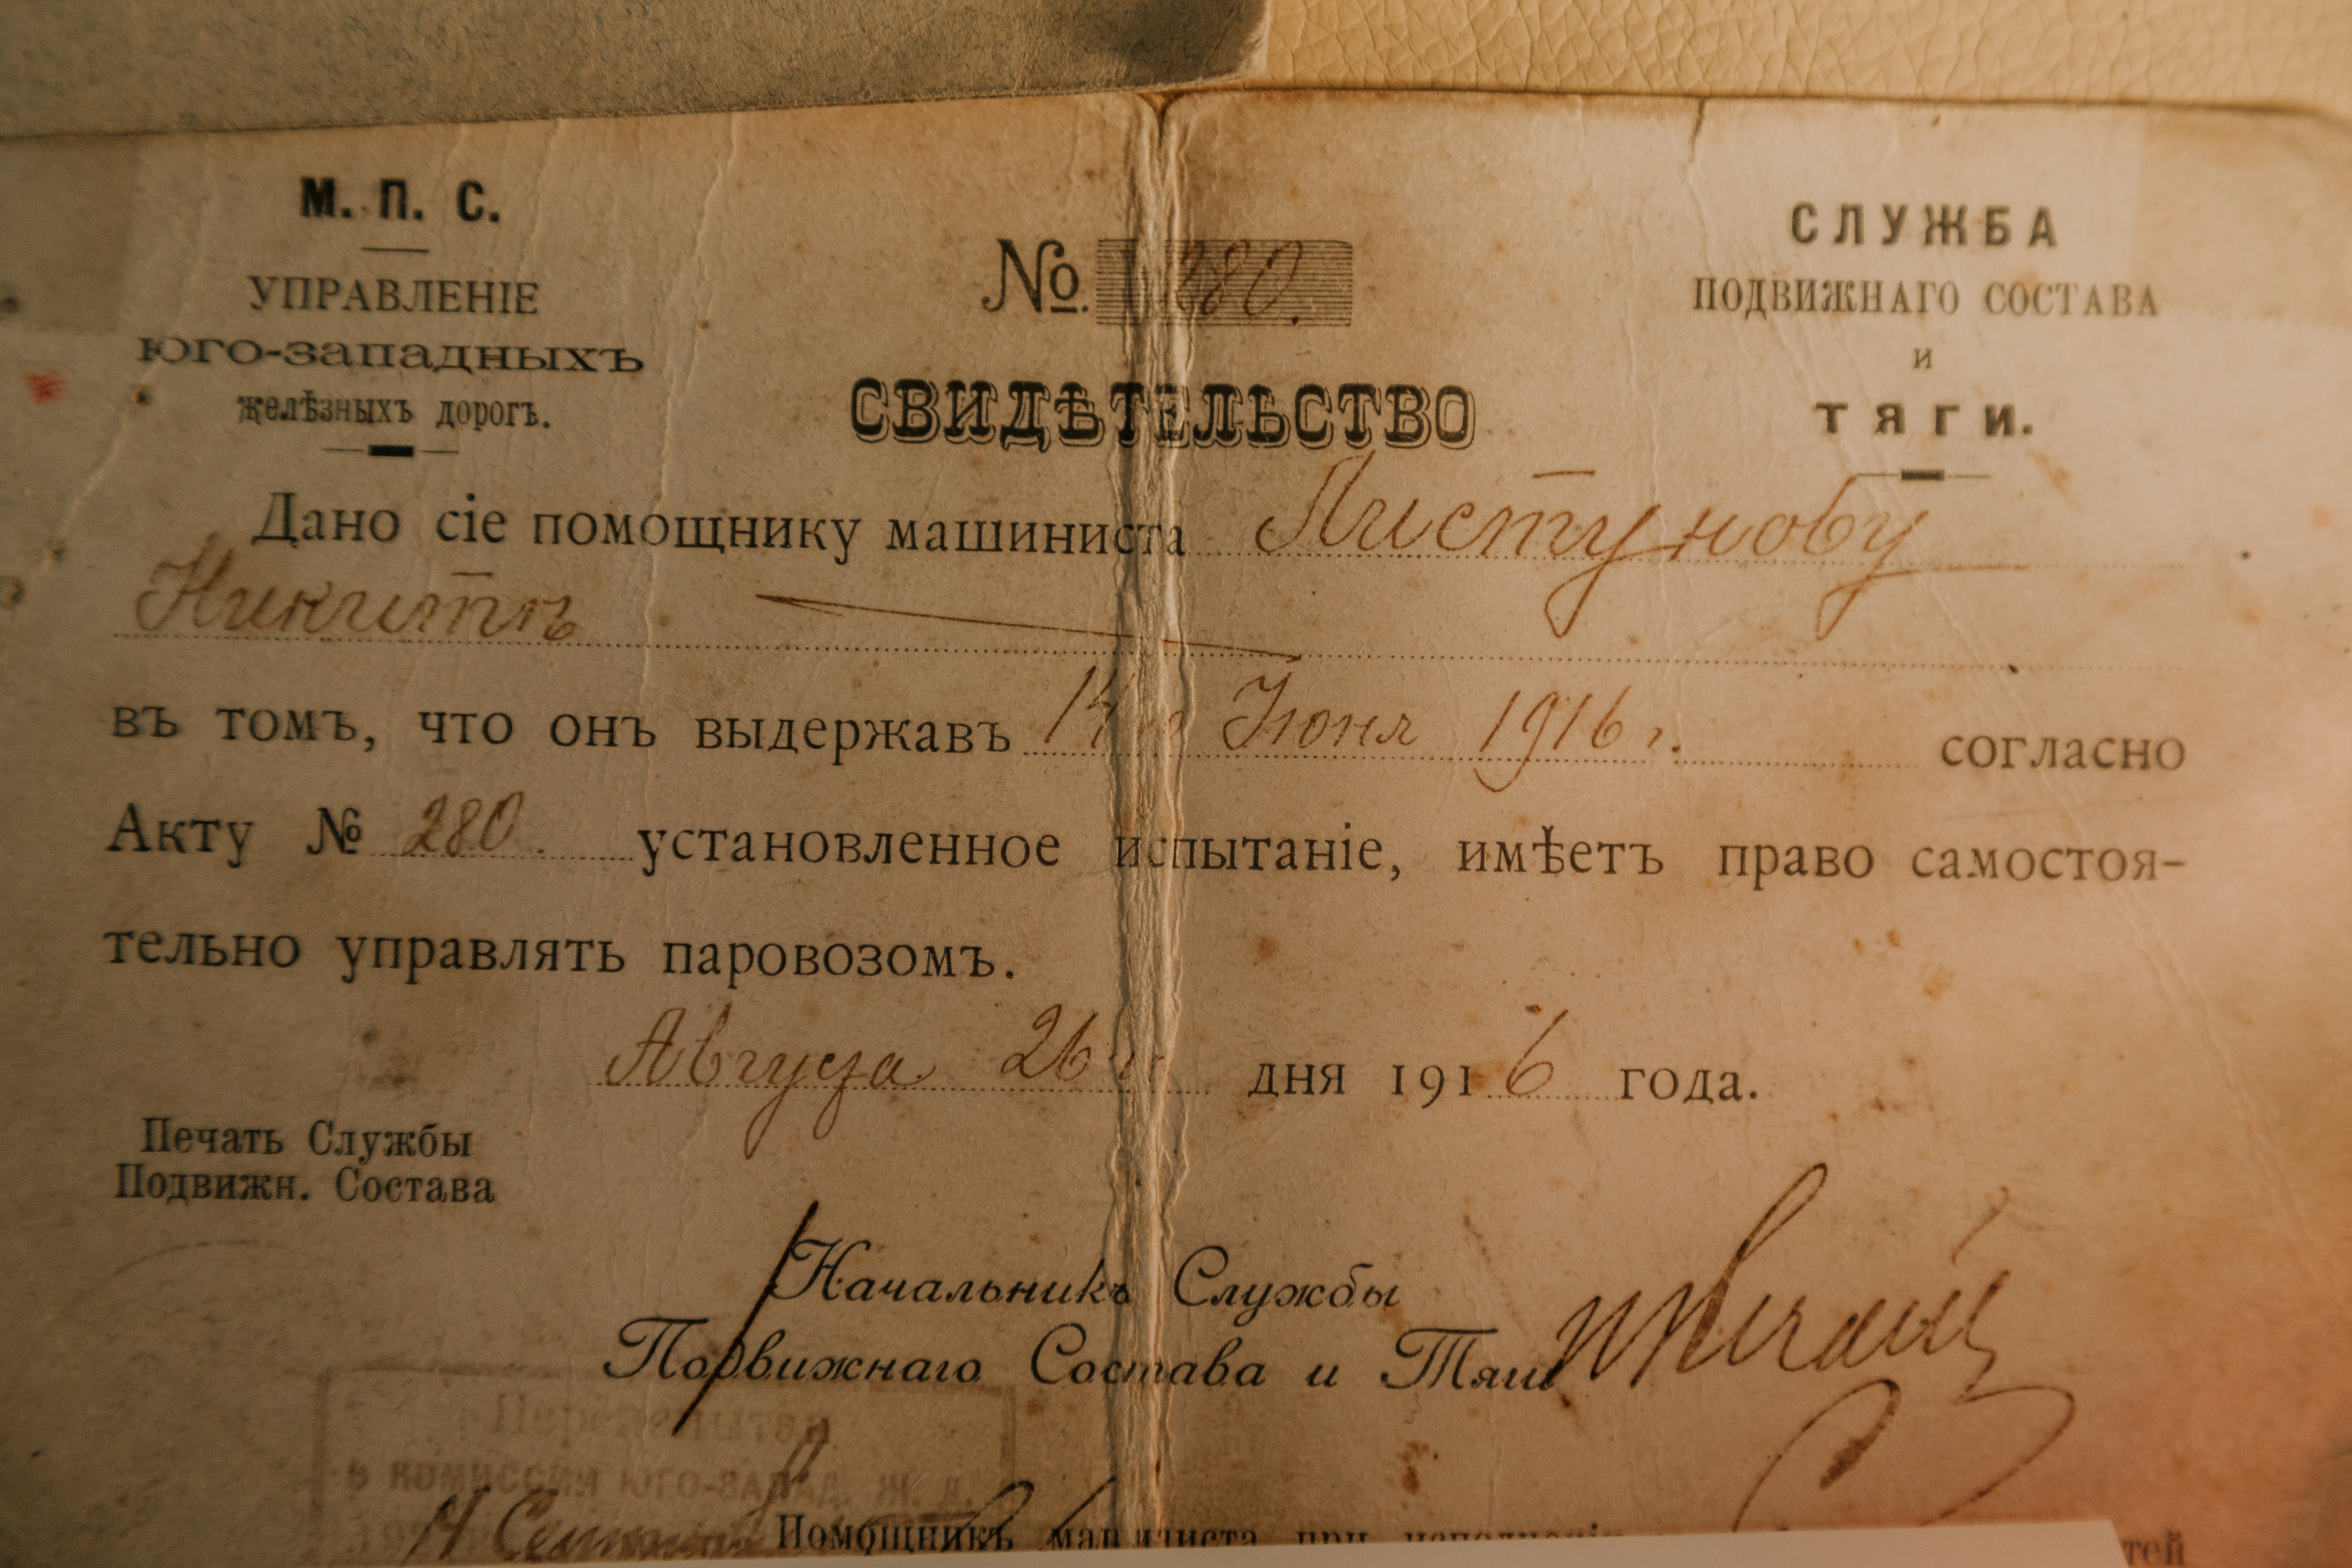 М. П. С.
УПРАВЛЕНІЕ
ЮГО-ЗАПАДНЫХЪ
желѣзныхъ дорогъ.
№ 280.
СЛУЖБА
ПОДВИЖНАГО СОСТАВА
и
ТЯГИ.
СВИДѢТЕЛЬСТВО
Дано сіе помощнику машиниста Листунову
Никитѣ
въ томъ, что онъ выдержавъ 14 Іюня 1916 г. согласно
Акту № 280. установленное испытаніе, имѣетъ право самостоя-
тельно управлять паровозомъ.
Августа 26 дня 1916 года.
Печать Службы
Подвижн. Состава
Начальникъ Службы
Подвижнаго Состава и Тяги
в комиссии Юго-Запад. ж. д.
Помощникъ машиниста при